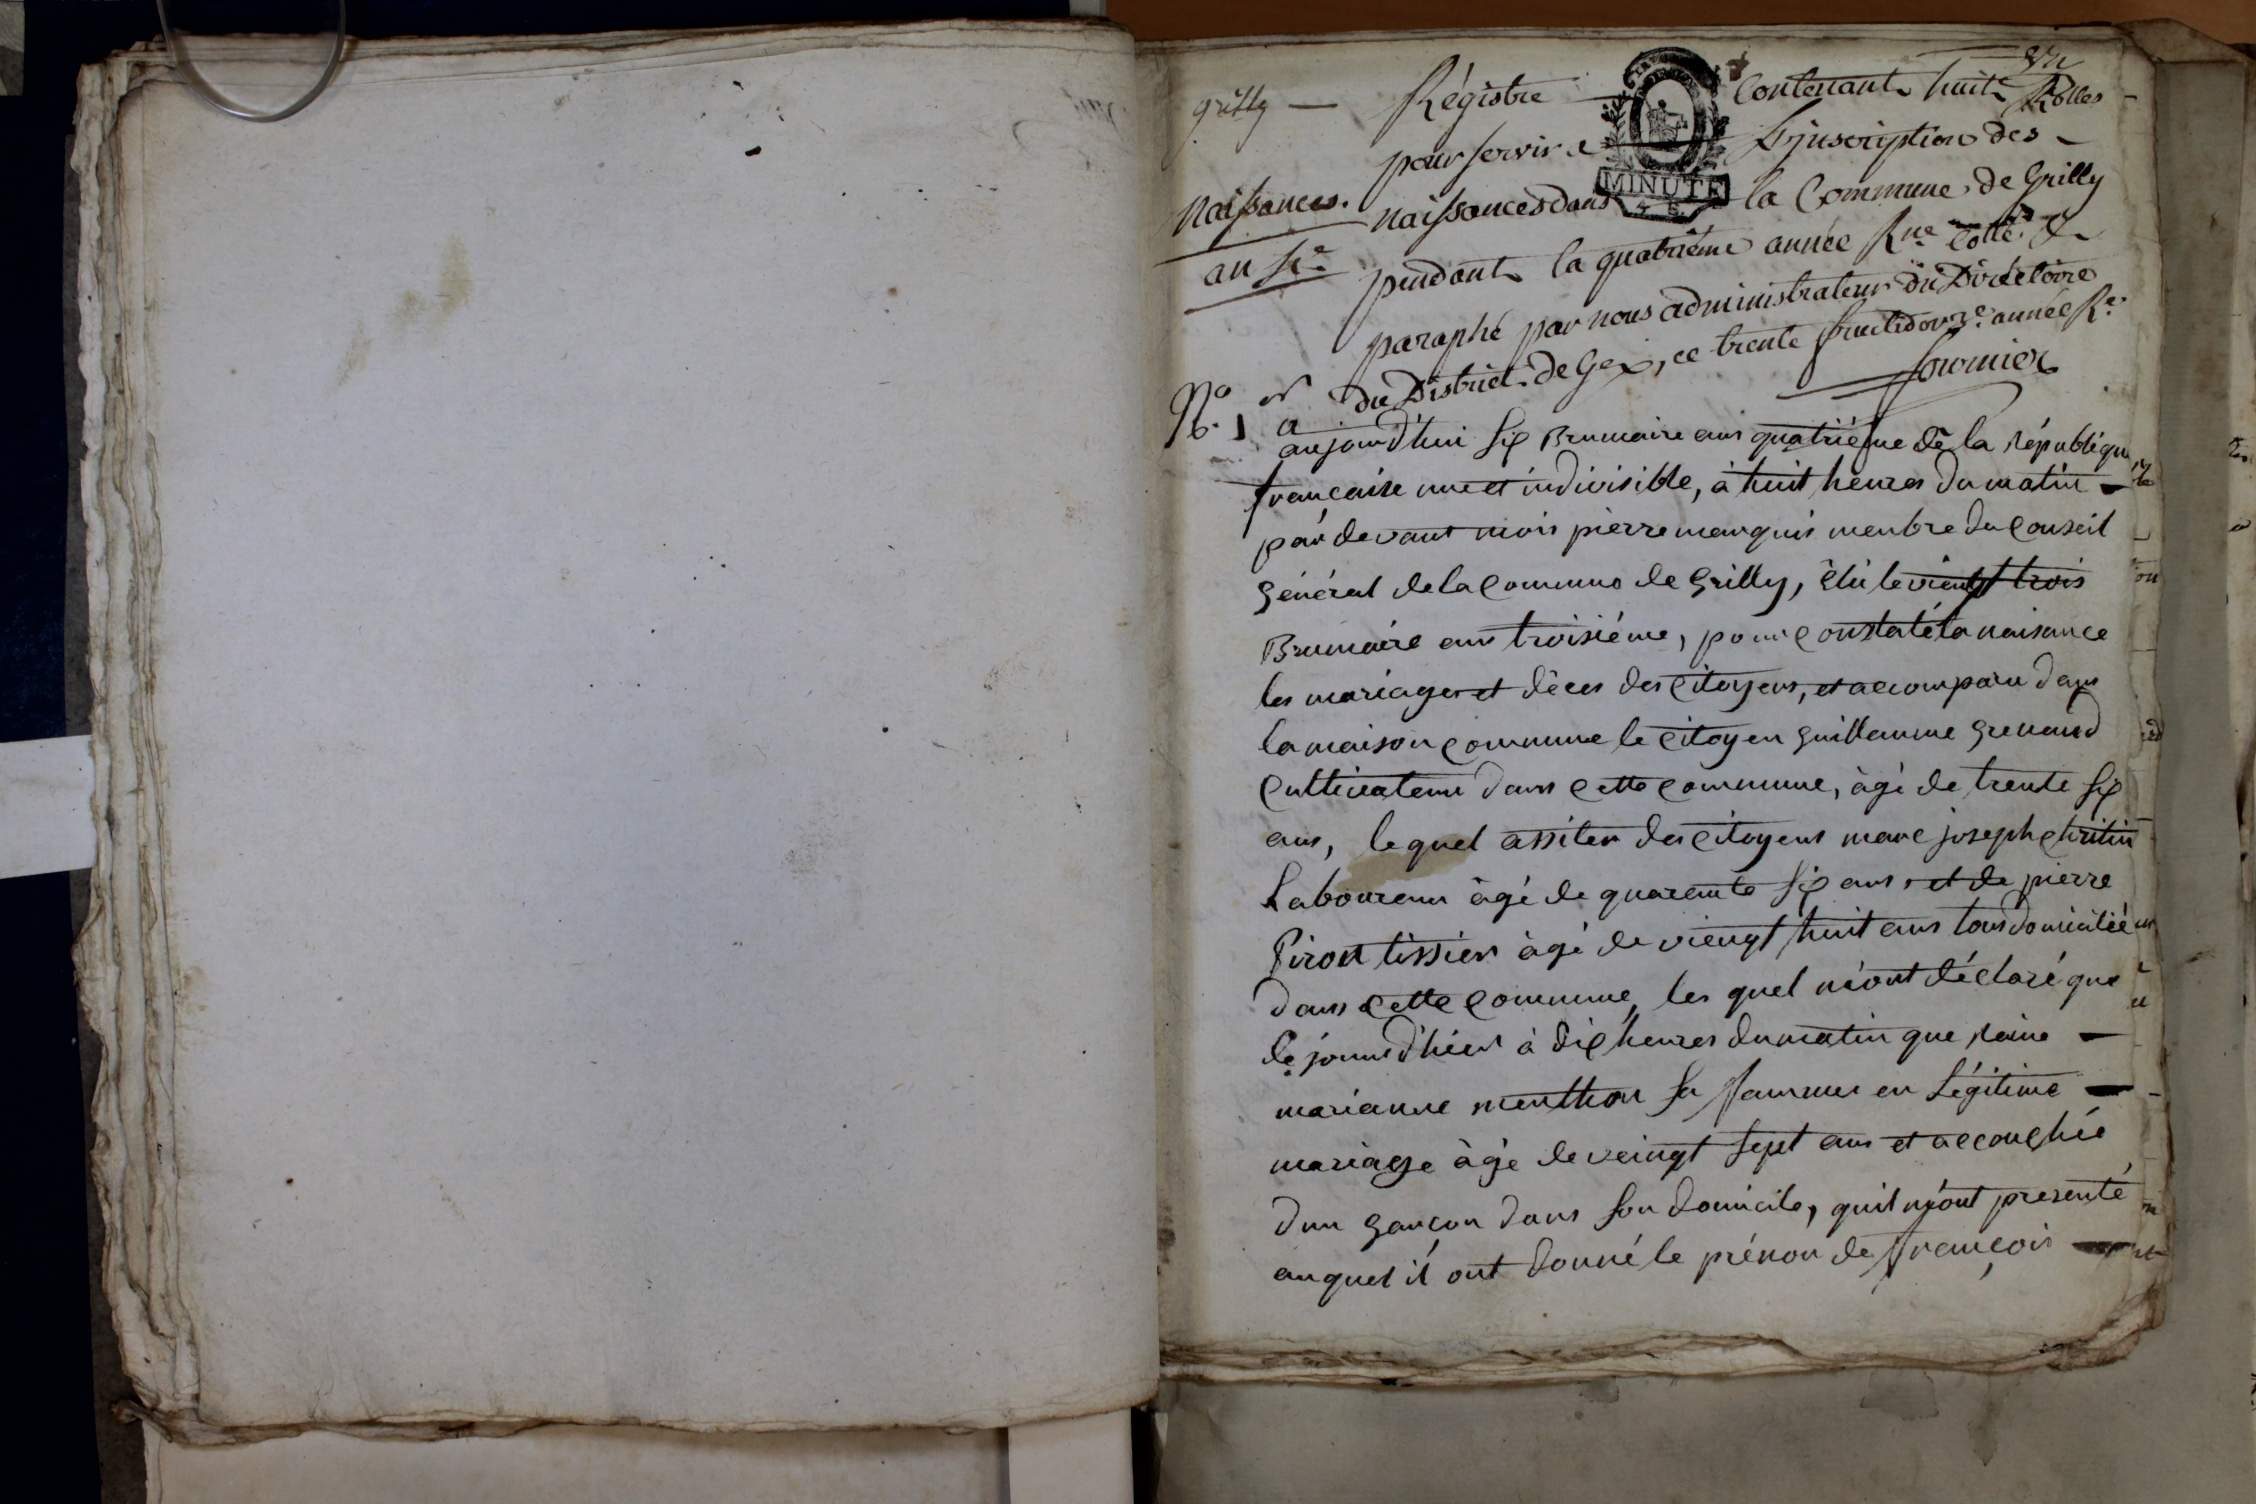 un
grilly — Régistre Contenant huit Rolles
pour servir a L'inscription des
MINUTE
Naissances. naissances dans la Commune de Grilly
an 4e pendant la quatrième année Rne Cotté &
paraphé par nous administrateur du Directoire
du District de Gex, ce trente fructidor 3e année Re
fournier
No 1 aujourd'hui six Brumaire ans quatriéme de la républiqu
française une et indivisible, à huit heures du matin
par devant mois pierre marquis menbre du Conseil
général de la Commune de Grilly, élü le viengt trois
Brumaire ans troisiéme, pour constaté la naisance
les mariages et déces des Citoyens, et a comparu dans
la maison commune le Citoyen guillaume grenaud
Cultivateur dans cette commune, àgé de trente six
ans, lequel assiter des Citoyens marc joseph chritin
Laboureur àgé de quarente six ans et de pierre
Piron tissier àgé de viengt huit ans tous domicilié
dans cette commune, les quel m'ont déclaré que
le jours d'hier à dix heures du matin que
marianne menthon sa famme en Légitime
mariage àgé de veingt sept ans et accouchée
d'un garçon dans son domicile, quil m'ont presenté
au quel il ont donné le prénon de françois